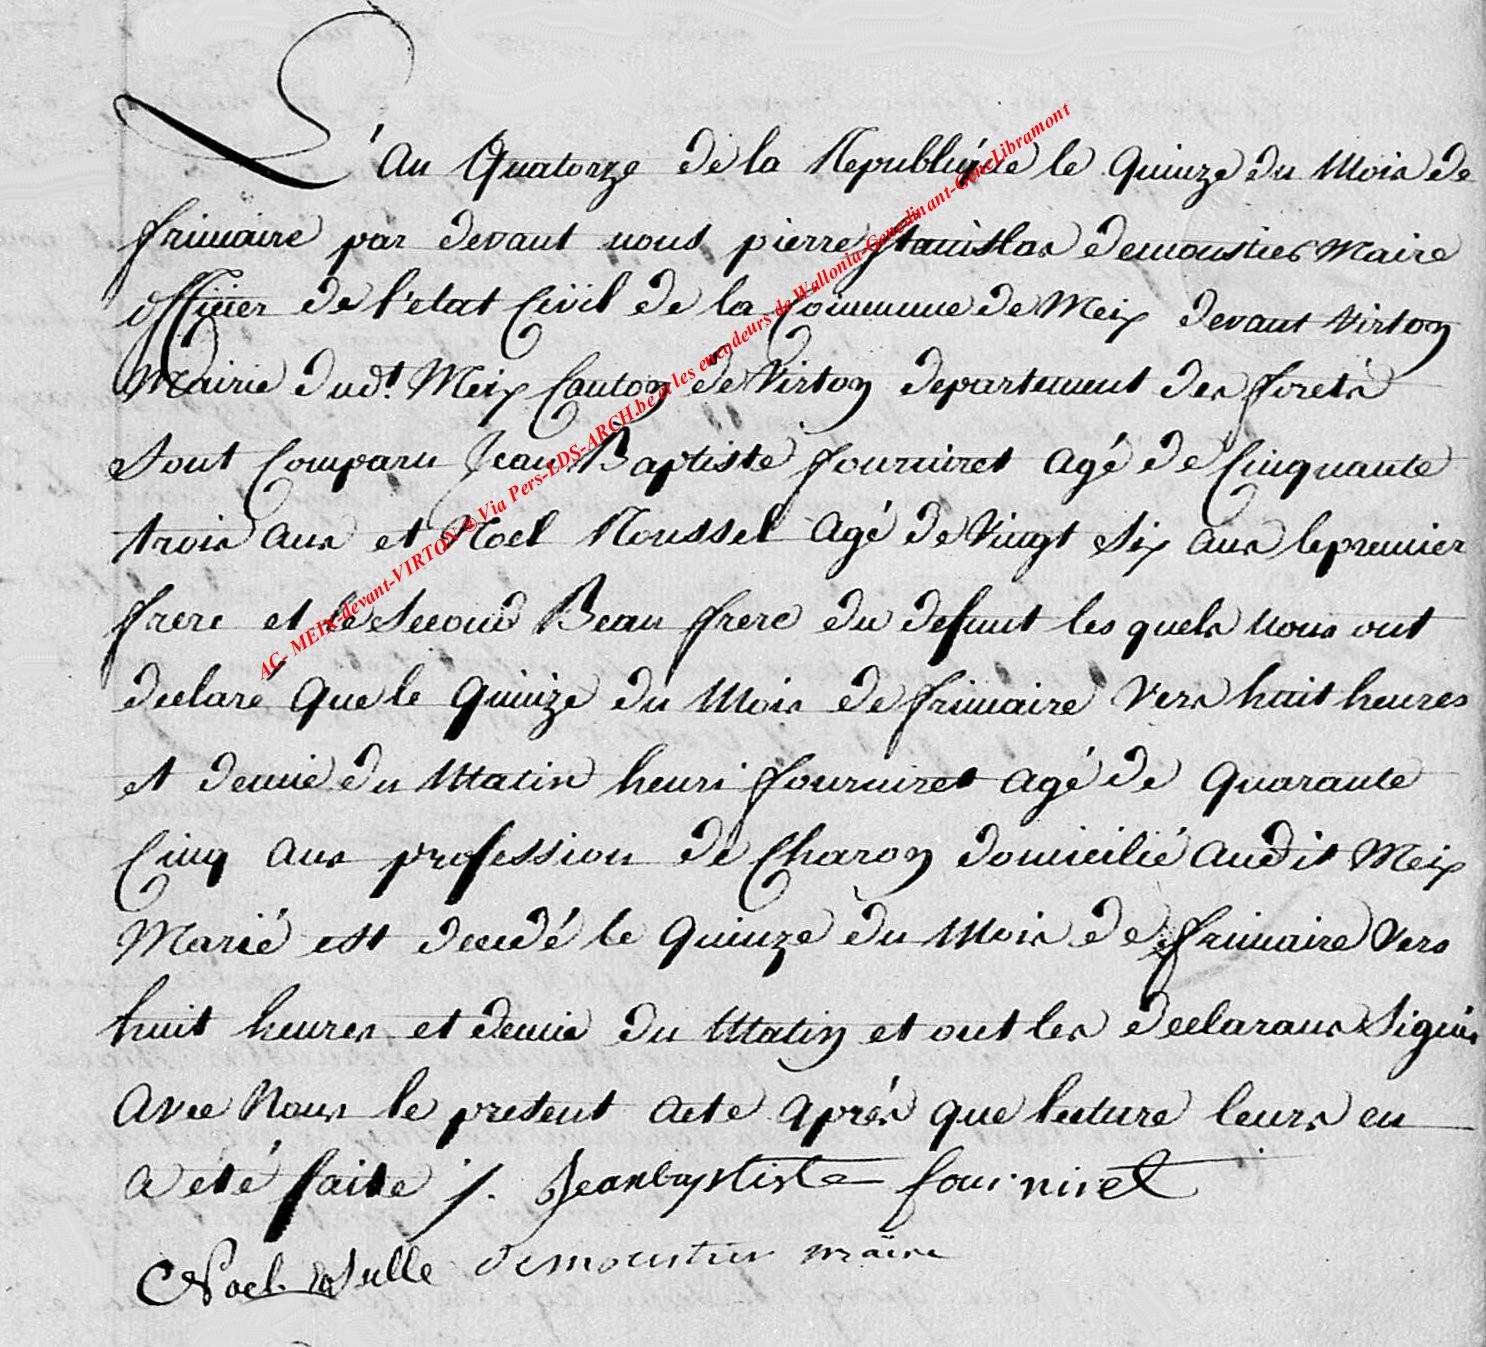 L'an Quatorze de la Republique le Quinze du Mois de
frimaire par devant nous pierre Stanislas demoustier Maire
officier de l'etat Civil de la Commune de Meix devant Virton
Mairie dudt. Meix Canton de Virton departement des forets
Sont Comparu Jean Baptiste fourniret agé de Cinquante
trois ans et Noel Roussel agé de Vingt Six ans le premier
frere et le Second Beau frere du defunt les quels nous ont
declaré que le Quinze du Mois de frimaire Vers huit heures
et demie du Matin henri fourniret agé de Quarante
Cinq ans profession de Charon domicilié audit Meix
Marié est decedé le Quinze du Mois de frimaire Vers
huit heures et demie du Matin et ont les declarans Signés
Avec Nous le present acte après que lecture leurs en
a été faite j. Jeanbaptiste fourniret
Noel demoustier maire
AC- MEIX-devant-VIRTON ® Via Pers-LDS-ARCH.be et les encodeurs de Wallonia-Genedinant-GeneLibramont